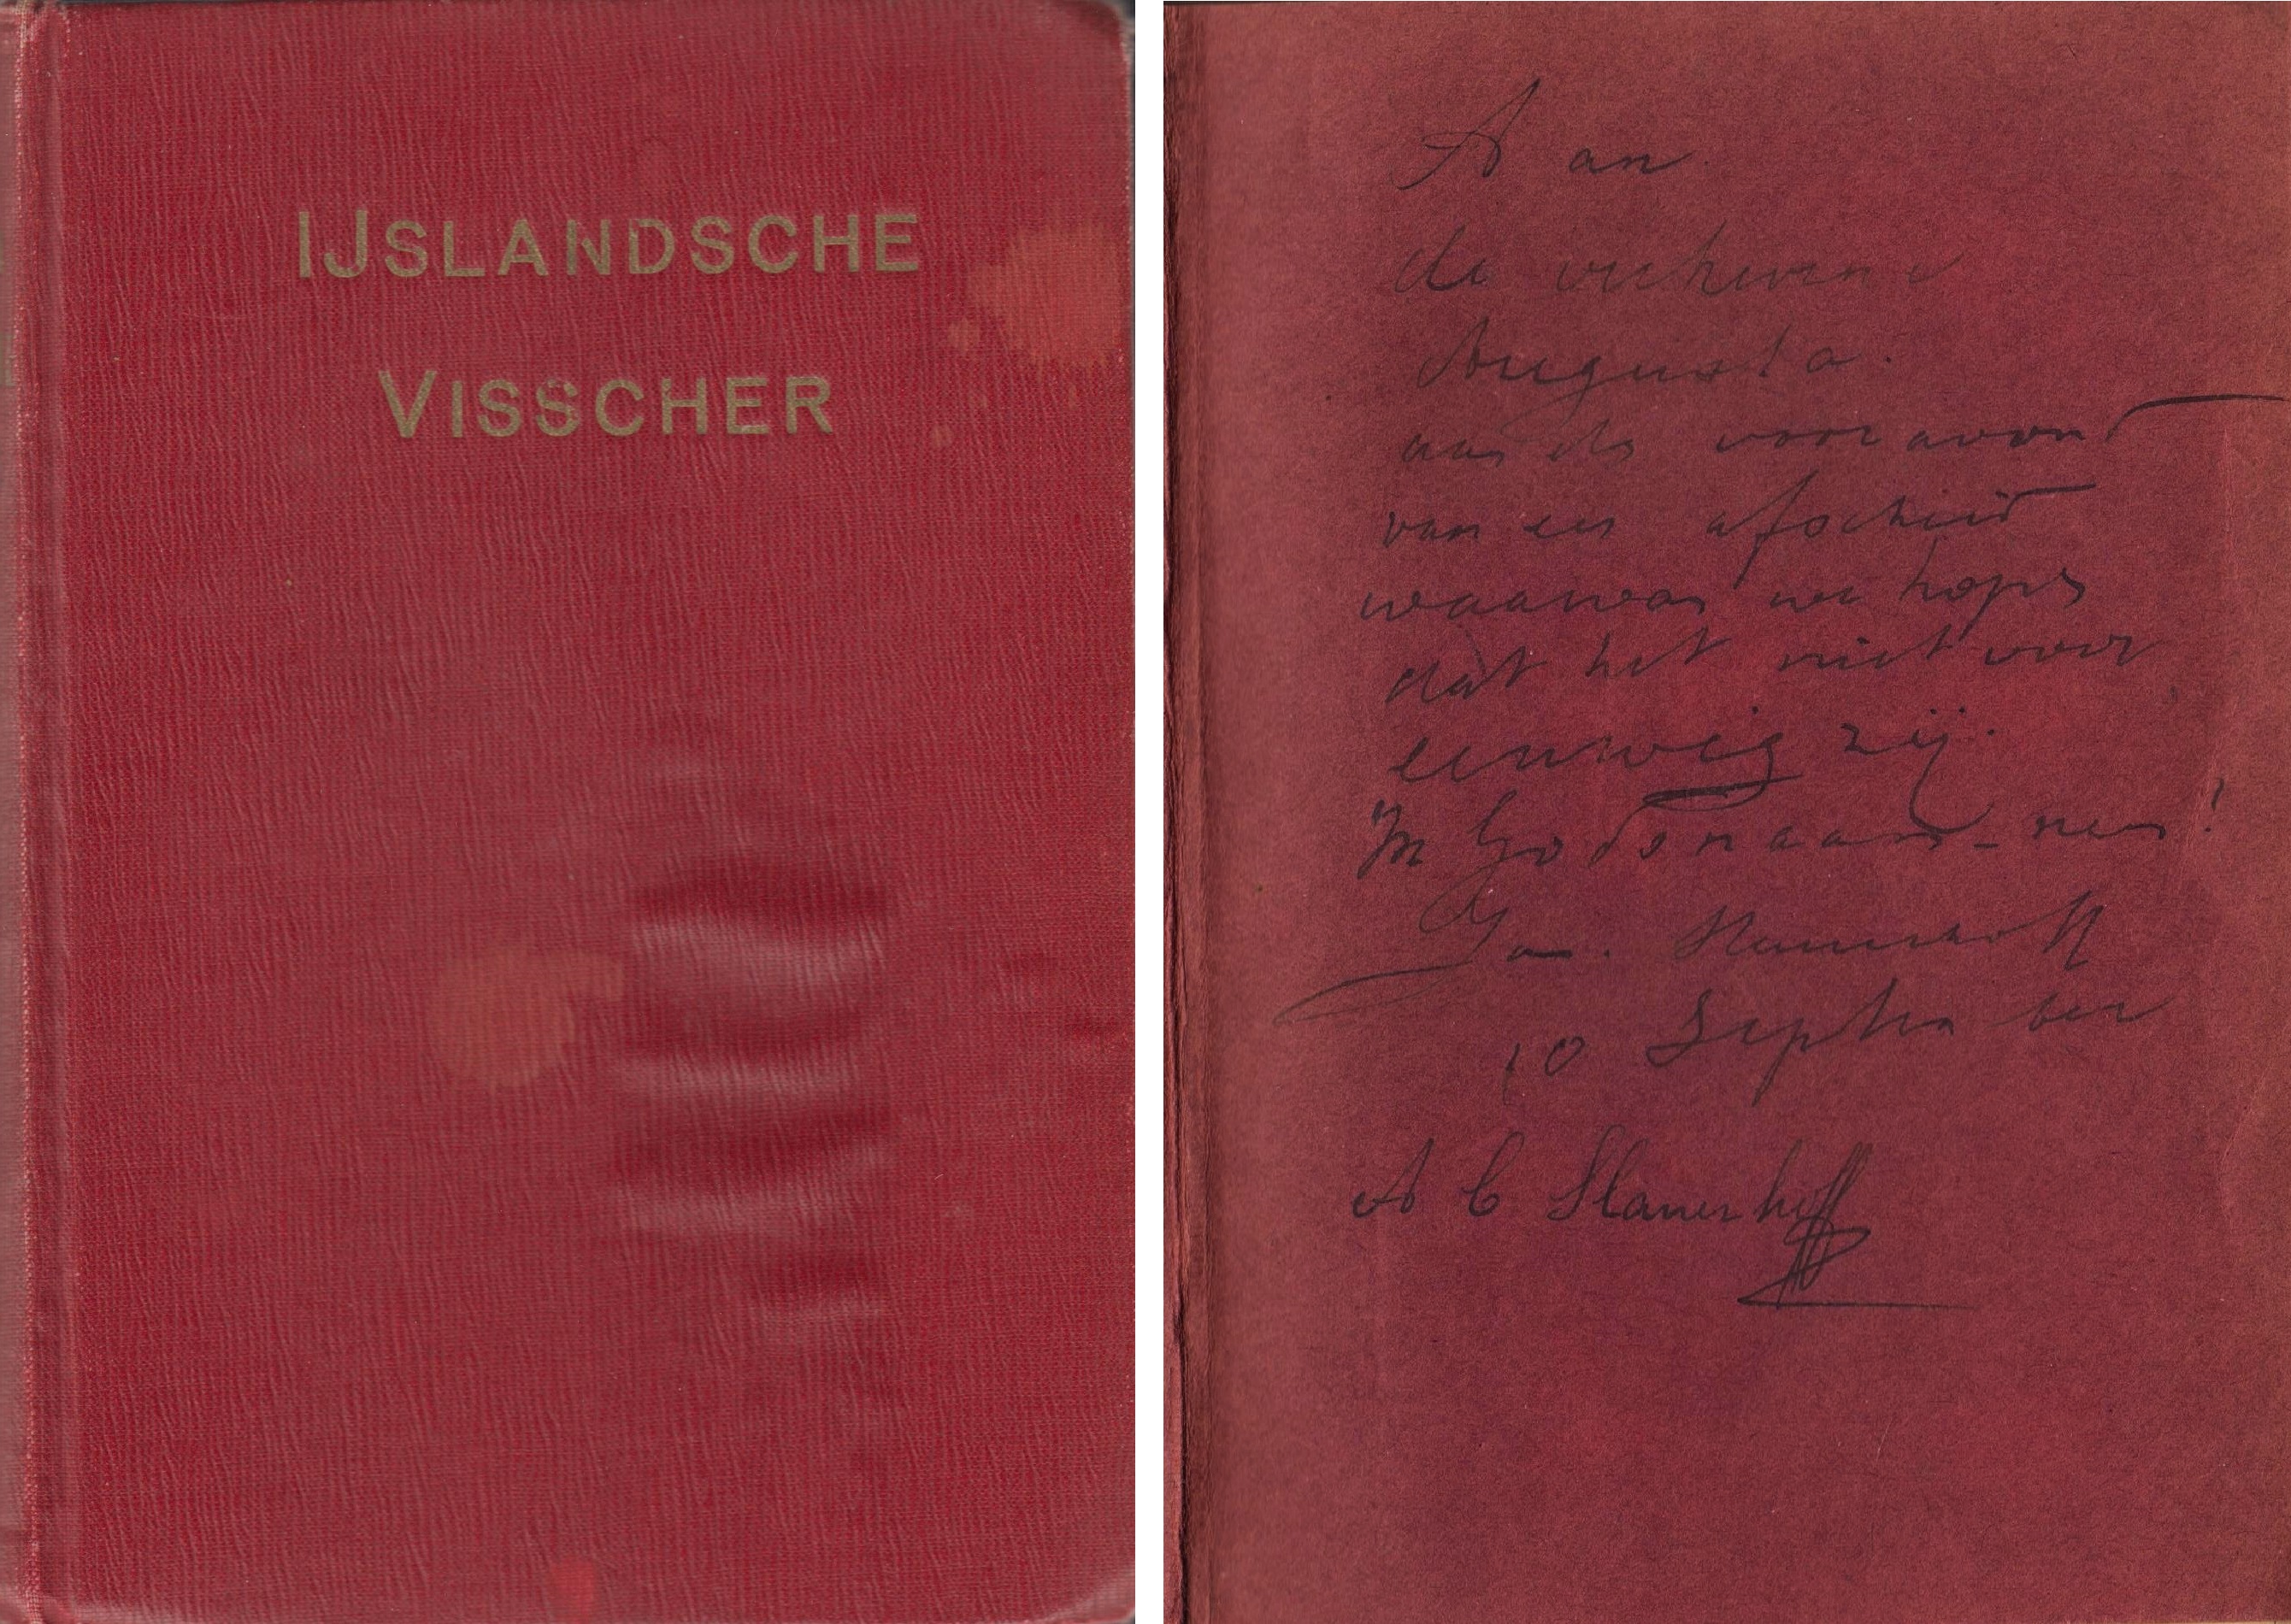 IJSLANDSCHE
VISSCHER
Aan
de verhevene
Augusta.
aan de vooravond
van een afscheid
waarvan we hopen
dat het niet voor
eeuwig zij.
In Godsnaam - nee!
Jan. Slauerhoff
10 September
A C Slauerhoff